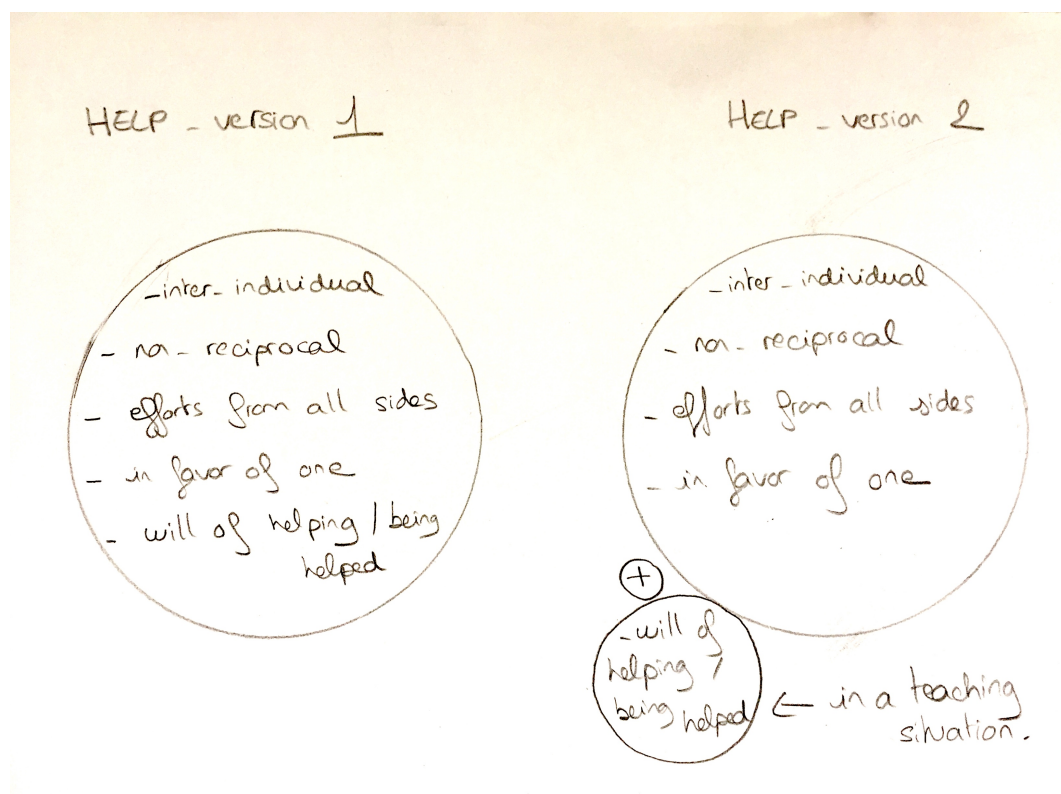 HELP - version 1
- inter-individual
- non-reciprocal
- efforts from all sides
- in favor of one
- will of helping / being
helped
HELP - version 2
- inter-individual
- non-reciprocal
- efforts from all sides
- in favor of one
+
- will of
helping /
being helped
← in a teaching
situation.